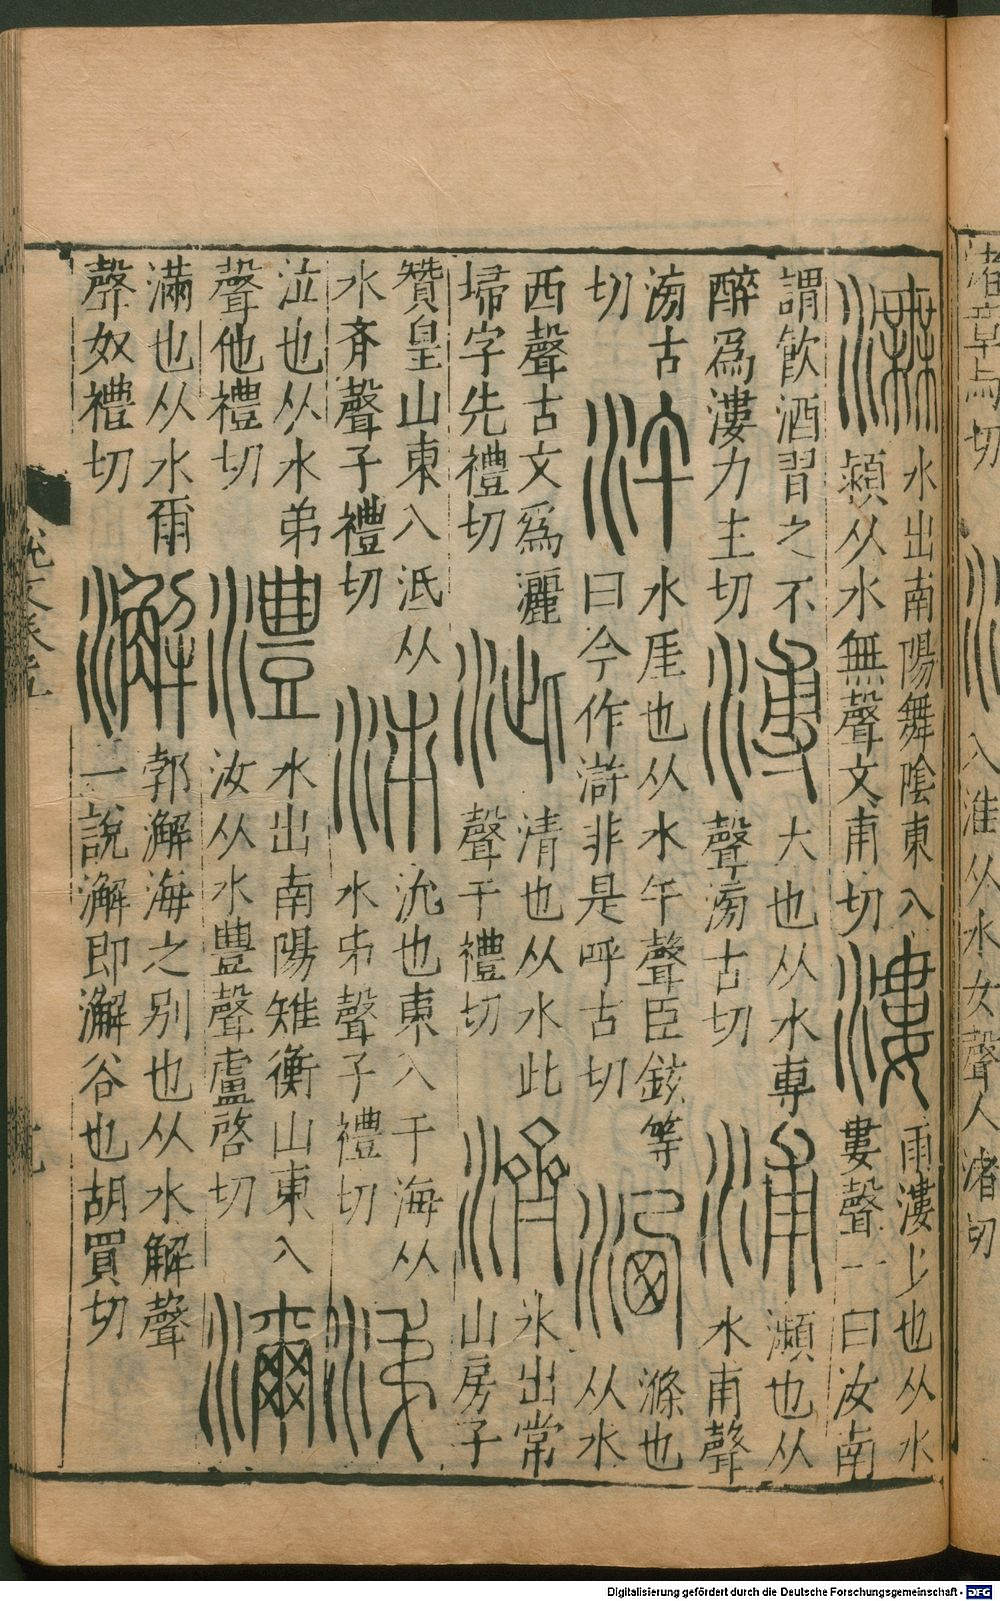 渚章与切
入淮从水女聲人渚切
潕
水出南陽舞陰東入
潁从水無聲文甫切
漊
雨漊〻也从水
婁聲一曰汝南
謂飲酒習之不
醉爲漊力主切
溥
大也从水尃
聲滂古切
浦
瀕也从
水甫聲
滂古
切
汻
水厓也从水午聲臣鉉等
曰今作滸非是呼古切
洒
滌也
从水
西聲古文爲灑
埽字先禮切
泚
清也从水此
聲千禮切
濟
水出常
山房子
贊皇山東入泜从
水斉聲子禮切
泲
沇也東入于海从
水𠂔聲子禮切
涕
泣也从水弟
聲他禮切
澧
水出南陽雉衡山東入
汝从水豊聲盧啓切
濔
滿也从水爾
聲奴禮切
澥
郭澥海之別也从水解聲
一說澥即澥谷也胡買切
Digitalisierung gefördert durch die Deutsche Forschungsgemeinschaft - DFG